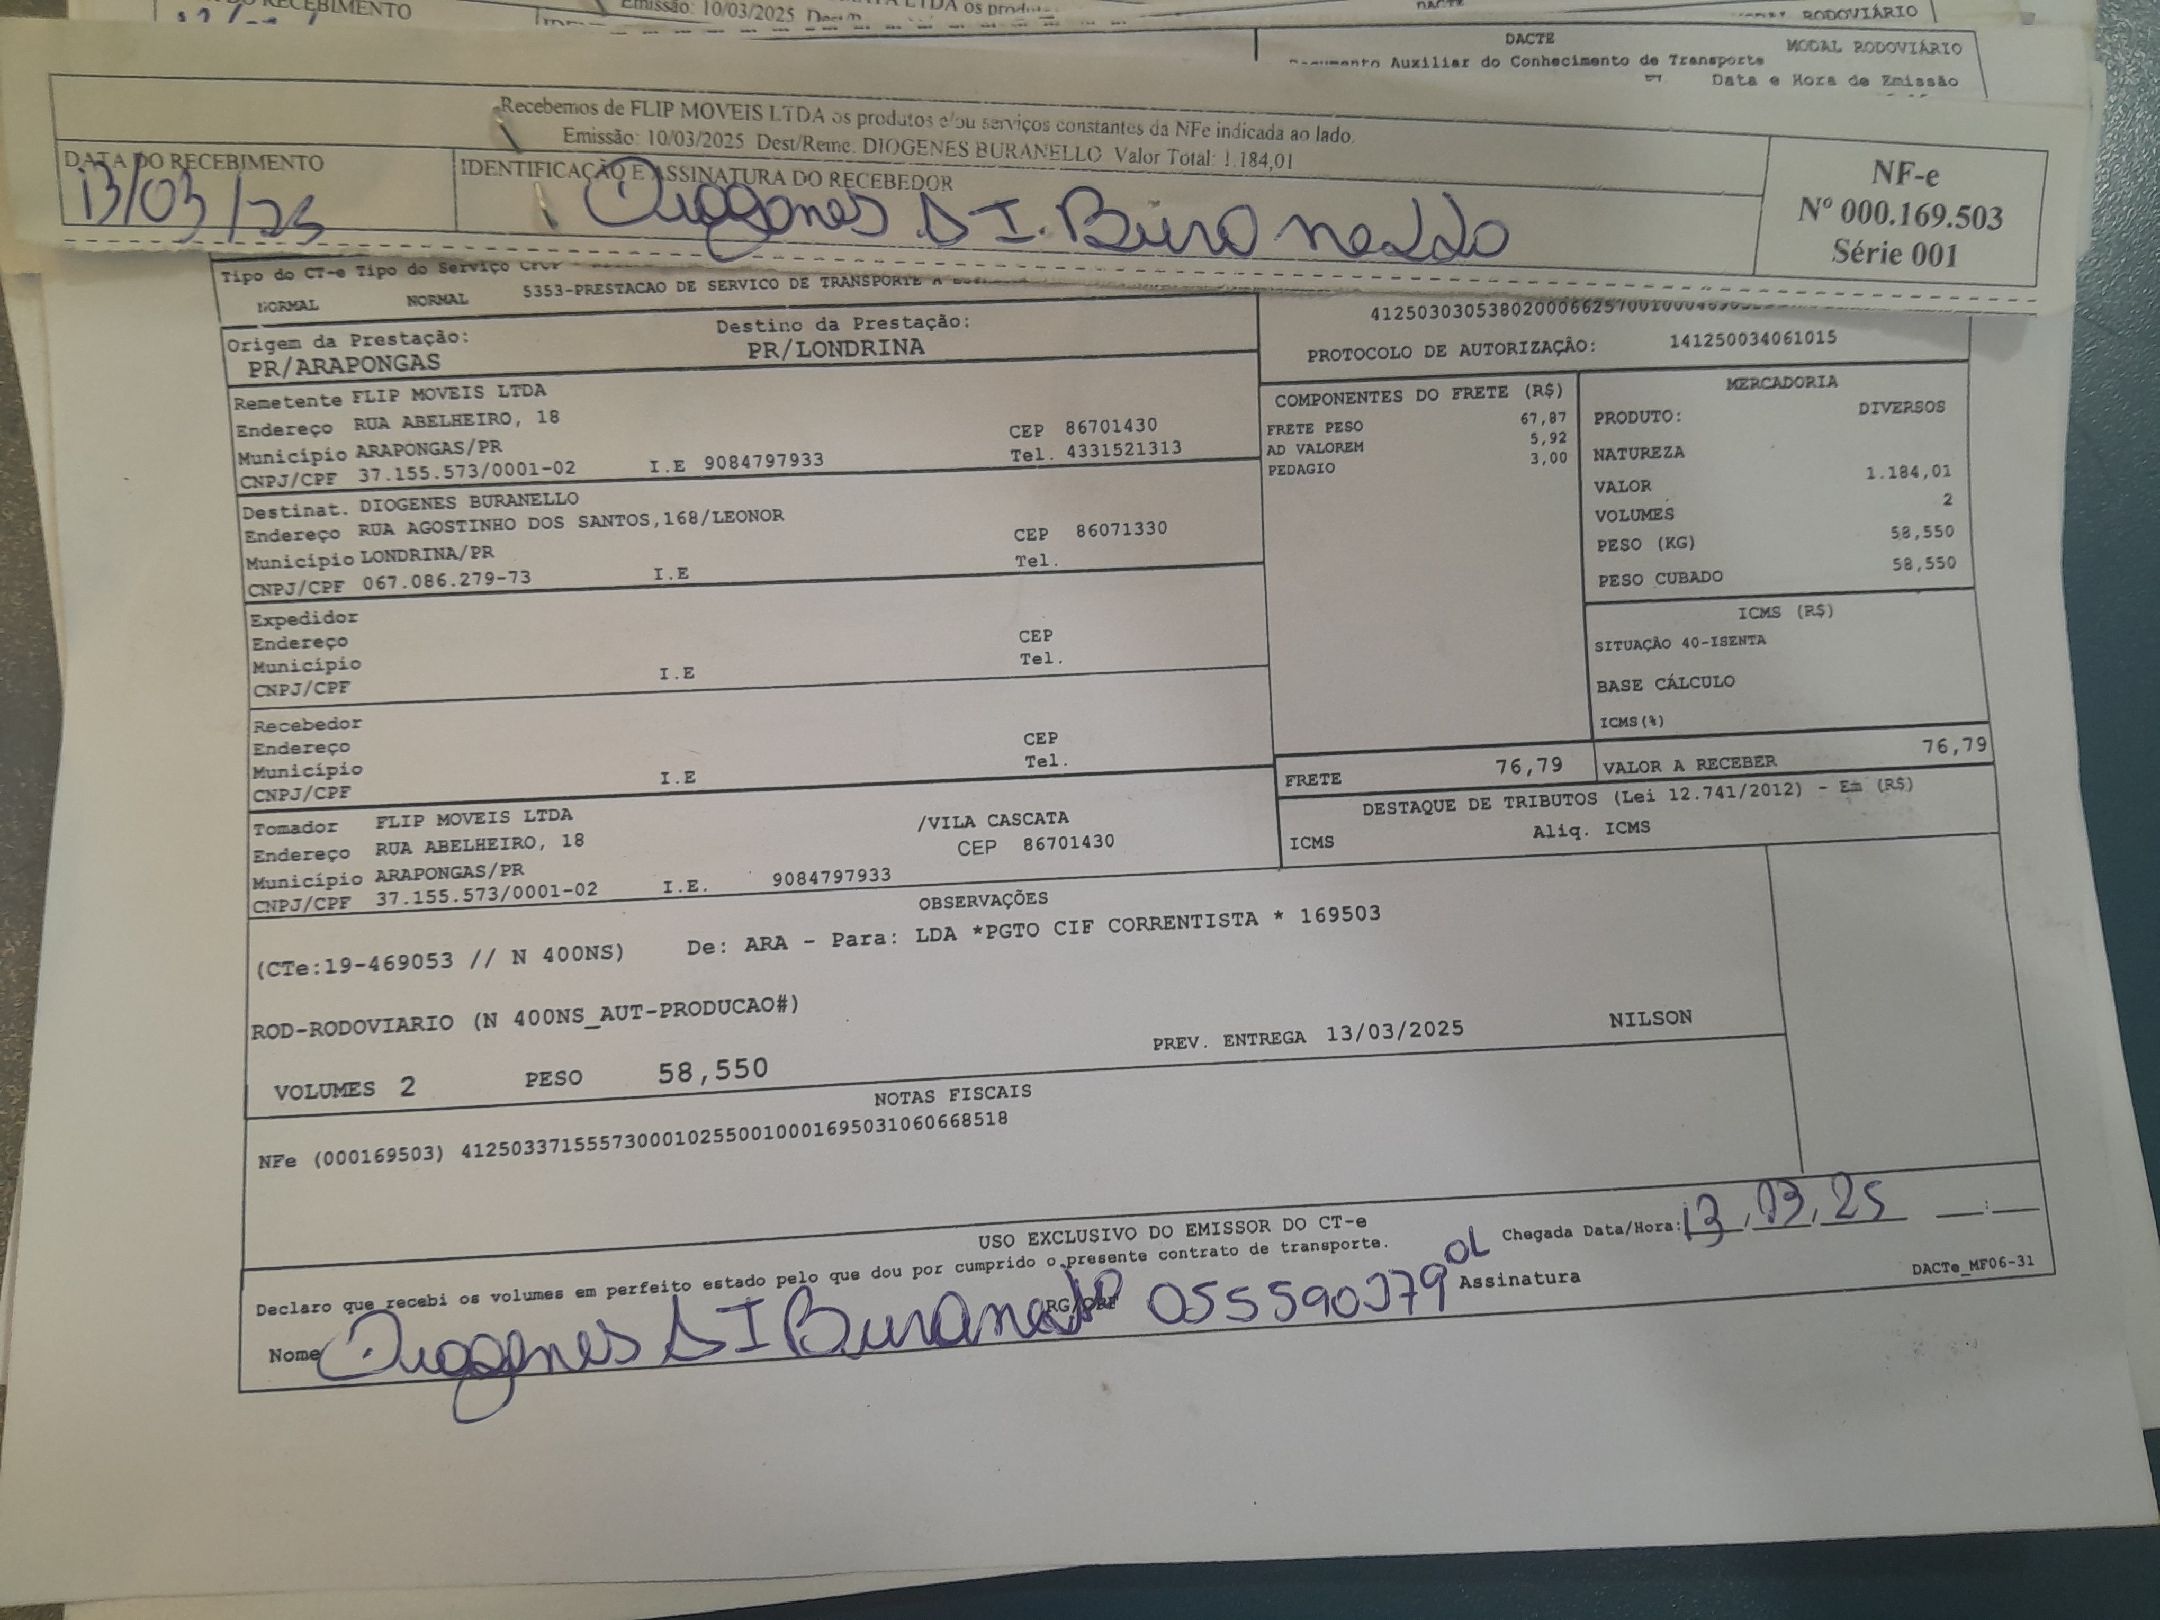 RECEBIMENTO
Emissão: 10/03/2025
RODOVIÁRIO
DACTE
MODAL RODOVIÁRIO
Auxiliar do Conhecimento de Transporte
Data e Hora de Emissão
Recebemos de FLIP MOVEIS LTDA os produtos e/ou serviços constantes da NFe indicada ao lado.
Emissão: 10/03/2025 Dest/Reme: DIOGENES BURANELLO Valor Total: 1.184,01
DATA DO RECEBIMENTO
13/03/25
IDENTIFICAÇÃO E ASSINATURA DO RECEBEDOR
Diogenes D I. Buranello
NF-e
Nº 000.169.503
Série 001
Tipo do CT-e Tipo do Serviço
NORMAL NORMAL 5353-PRESTACAO DE SERVICO DE TRANSPORTE A
Origem da Prestação: Destino da Prestação:
PR/ARAPONGAS PR/LONDRINA
PROTOCOLO DE AUTORIZAÇÃO: 141250034061015
Remetente FLIP MOVEIS LTDA
Endereço RUA ABELHEIRO, 18 CEP 86701430
Município ARAPONGAS/PR Tel. 4331521313
CNPJ/CPF 37.155.573/0001-02 I.E 9084797933
Destinat. DIOGENES BURANELLO
Endereço RUA AGOSTINHO DOS SANTOS,168/LEONOR CEP 86071330
Município LONDRINA/PR Tel.
CNPJ/CPF 067.086.279-73 I.E
Expedidor
Endereço CEP
Município Tel.
CNPJ/CPF I.E
Recebedor
Endereço CEP
Município Tel.
CNPJ/CPF I.E
Tomador FLIP MOVEIS LTDA /VILA CASCATA
Endereço RUA ABELHEIRO, 18 CEP 86701430
Município ARAPONGAS/PR
CNPJ/CPF 37.155.573/0001-02 I.E. 9084797933
COMPONENTES DO FRETE (R$)
FRETE PESO 67,87
AD VALOREM 5,92
PEDAGIO 3,00
MERCADORIA
PRODUTO: DIVERSOS
NATUREZA
VALOR 1.184,01
VOLUMES 2
PESO (KG) 58,550
PESO CUBADO 58,550
ICMS (R$)
SITUAÇÃO 40-ISENTA
BASE CÁLCULO
ICMS(%)
FRETE 76,79 VALOR A RECEBER 76,79
DESTAQUE DE TRIBUTOS (Lei 12.741/2012) - Em (R$)
ICMS Aliq. ICMS
OBSERVAÇÕES
(CTe:19-469053 // N 400NS) De: ARA - Para: LDA *PGTO CIF CORRENTISTA * 169503
ROD-RODOVIARIO (N 400NS_AUT-PRODUCAO#)
PREV. ENTREGA 13/03/2025 NILSON
VOLUMES 2 PESO 58,550
NOTAS FISCAIS
NFe (000169503) 41250337155573000102550010001695031060668518
USO EXCLUSIVO DO EMISSOR DO CT-e
Declaro que recebi os volumes em perfeito estado pelo que dou por cumprido o presente contrato de transporte.
Chegada Data/Hora: 13,03,25 __:__
Nome Diogenes D I Buranello RG/CPF 055590379 Assinatura
DACTe_MF06-31